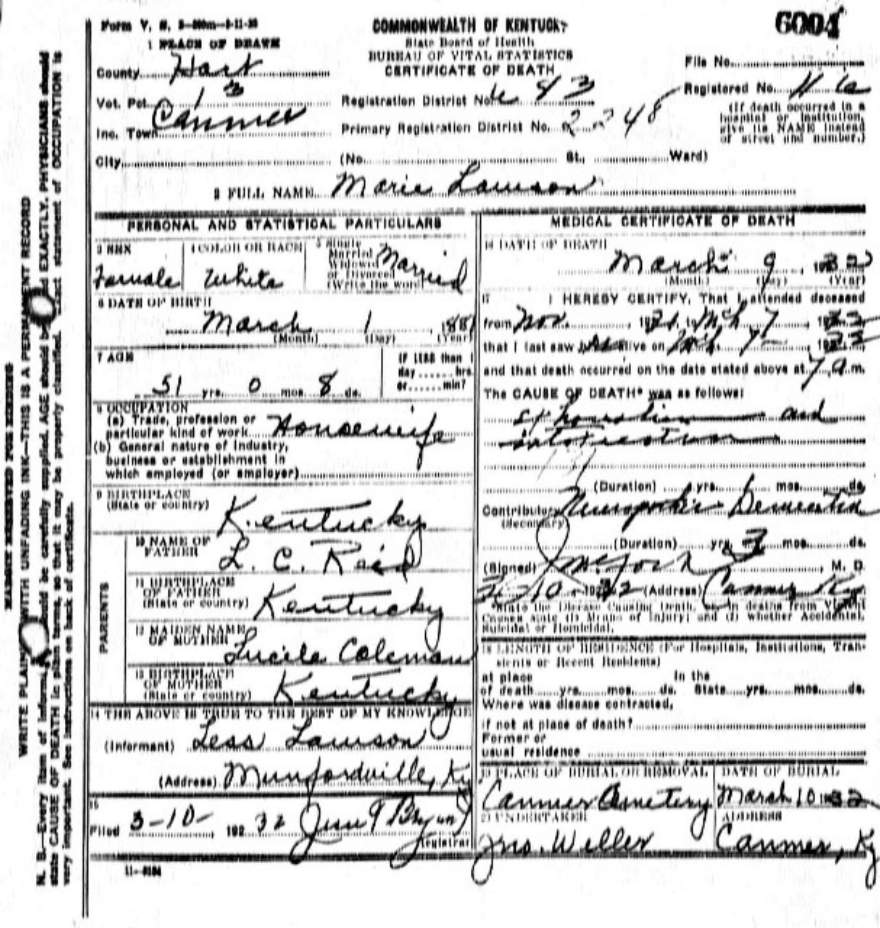 Form V. S.
6004
COMMONWEALTH OF KENTUCKY
State Board of Health
BUREAU OF VITAL STATISTICS
CERTIFICATE OF DEATH
1 PLACE OF DEATH
County Hart
Vot. Pct. 13
Inc. Town Canmer
City
(No. St., Ward)
Registration District No.
Primary Registration District No. 2248
File No.
Registered No.
(If death occurred in a
hospital or institution,
give its NAME instead
of street and number.)
2 FULL NAME Marie Lawson
PERSONAL AND STATISTICAL PARTICULARS
3 SEX Female
4 COLOR OR RACE White
5 Single
Married
Widowed
or Divorced
(Write the word) Married
6 DATE OF BIRTH
March 1 1881
(Month) (Day) (Year)
7 AGE
51 yrs. 0 mos. 8 ds.
If LESS than 1
day ...... hrs.
or ...... min?
8 OCCUPATION
(a) Trade, profession or
particular kind of work Housewife
(b) General nature of industry,
business or establishment in
which employed (or employer)
9 BIRTHPLACE
(State or country) Kentucky
PARENTS
10 NAME OF
FATHER L. C. Reid
11 BIRTHPLACE
OF FATHER
(State or country) Kentucky
12 MAIDEN NAME
OF MOTHER Lucile Coleman
13 BIRTHPLACE
OF MOTHER
(State or country) Kentucky
14 THE ABOVE IS TRUE TO THE BEST OF MY KNOWLEDGE
(Informant) Less Lawson
(Address) Munfordville, Ky
15
Filed 3-10-, 1932
Registrar
MEDICAL CERTIFICATE OF DEATH
16 DATE OF DEATH
March 9, 1932
(Month) (Day) (Year)
17 I HEREBY CERTIFY, That I attended deceased
from Nov. 1931, Mch 7, 1932
that I last saw alive on Mch 7- 1932
and that death occurred on the date stated above at 7 a.m.
The CAUSE OF DEATH* was as follows:
Exhaustion and
(Duration) yrs. mos. ds.
Contributory
(Secondary)
(Duration) yrs. 3 mos. ds.
(Signed) M. D.
3-10-1932 (Address) Canmer Ky
*State the Disease Causing Death, or in deaths from Violent
Causes state (1) Means of Injury; and (2) whether Accidental,
Suicidal or Homicidal.
18 LENGTH OF RESIDENCE (For Hospitals, Institutions, Tran-
sients or Recent Residents)
at place In the
of death yrs. mos. ds. State yrs. mos. ds.
Where was disease contracted,
if not at place of death?
Former or
usual residence
19 PLACE OF BURIAL OR REMOVAL
Canmer Cemetery
DATE OF BURIAL
March 10 1932
20 UNDERTAKER
Jno. Weller
ADDRESS
Canmer, Ky
MARGIN RESERVED FOR BINDING
WRITE PLAINLY WITH UNFADING INK—THIS IS A PERMANENT RECORD
N. B.—Every item of information should be carefully supplied. AGE should be stated EXACTLY. PHYSICIANS should
state CAUSE OF DEATH in plain terms, so that it may be properly classified. Exact statement of OCCUPATION is
very important. See instructions on back of certificate.